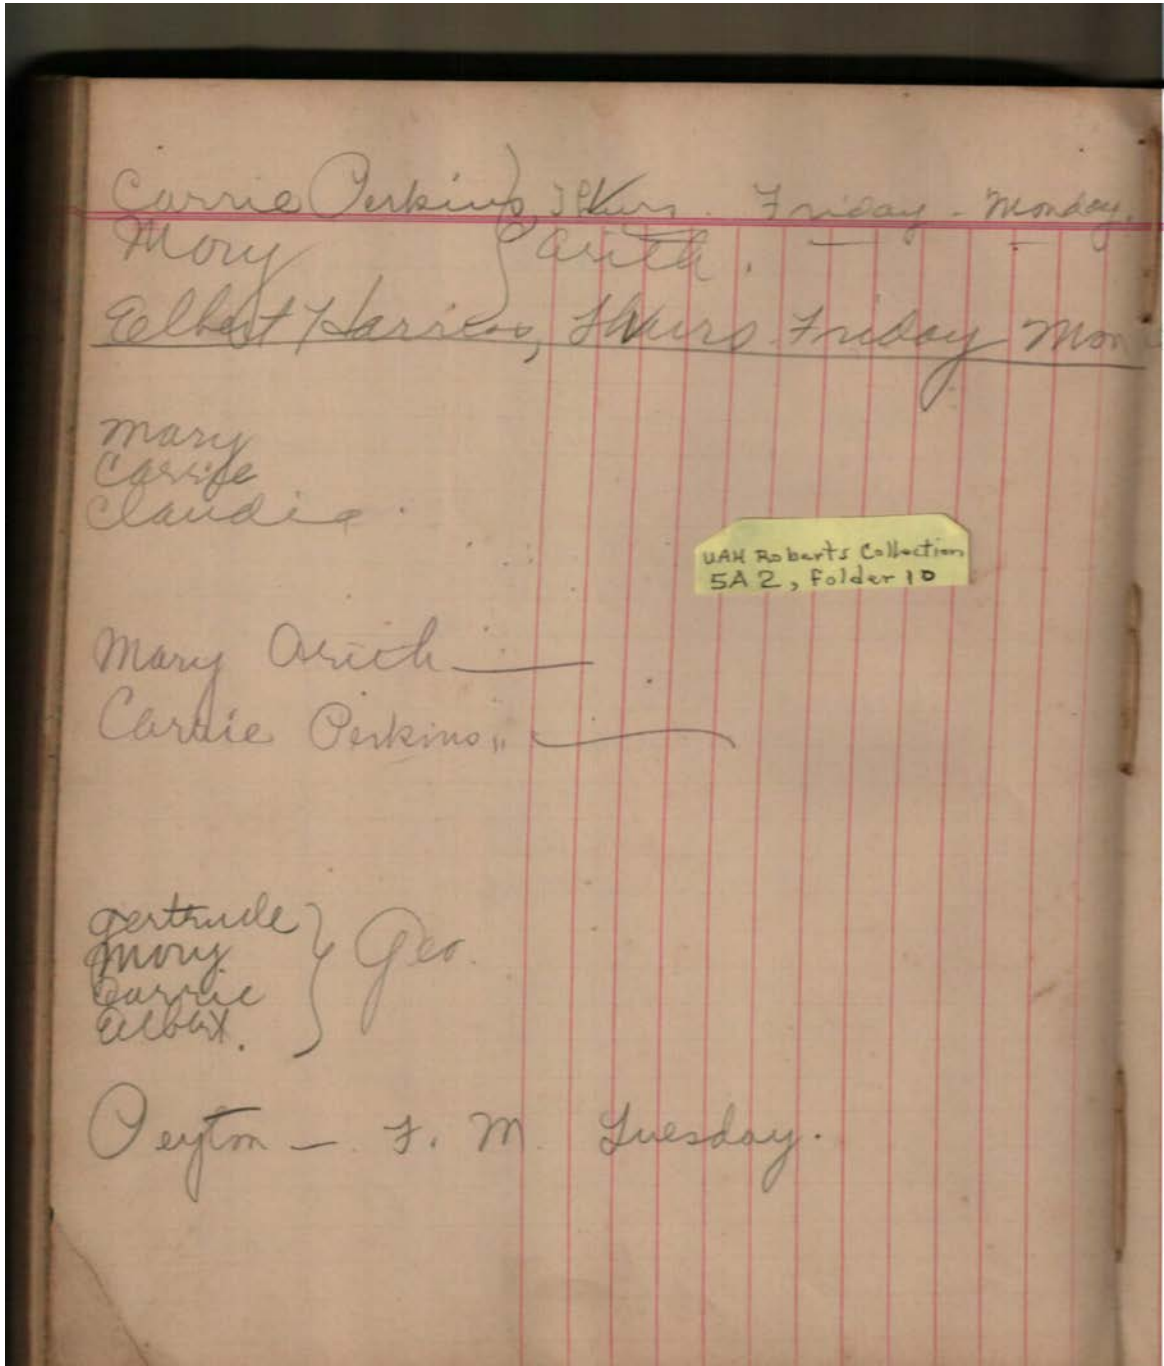 Carrie Perkins, Thurs. Friday - Monday.
Mary } Arith.
Elbert Harris, Thurs Friday Mon
Mary
Carrie
Claudia.
UAH Roberts Collection
5A2, Folder 10
Mary Arith
Carrie Perkins "
Gertrude
Mary
Carrie } Geo.
Elbert.
Peyton — F. M. Tuesday.